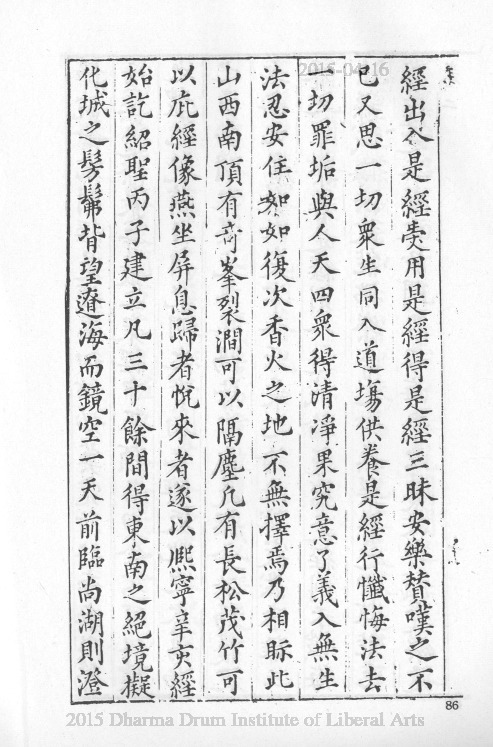 經出入是經受用是經得是經三昧安樂賛嘆之不
已又思一切衆生同入道塲供養是經行懺悔法去
一切罪垢與人天四衆得清凈果究意了義入無生
法忍安住如如復次香火之地不無擇焉乃相眎此
山西南頂有竒峯裂澗可以隔塵凡有長松茂竹可
以庇經像燕坐屏息歸者恱來者遂以熈寧辛亥經
始訖紹聖丙子建立凡三十餘間得東南之絕境擬
化城之髣髴背望遼海而鏡空一天前臨尚湖則澄
86
2015-04-16
2015 Dharma Drum Institute of Liberal Arts